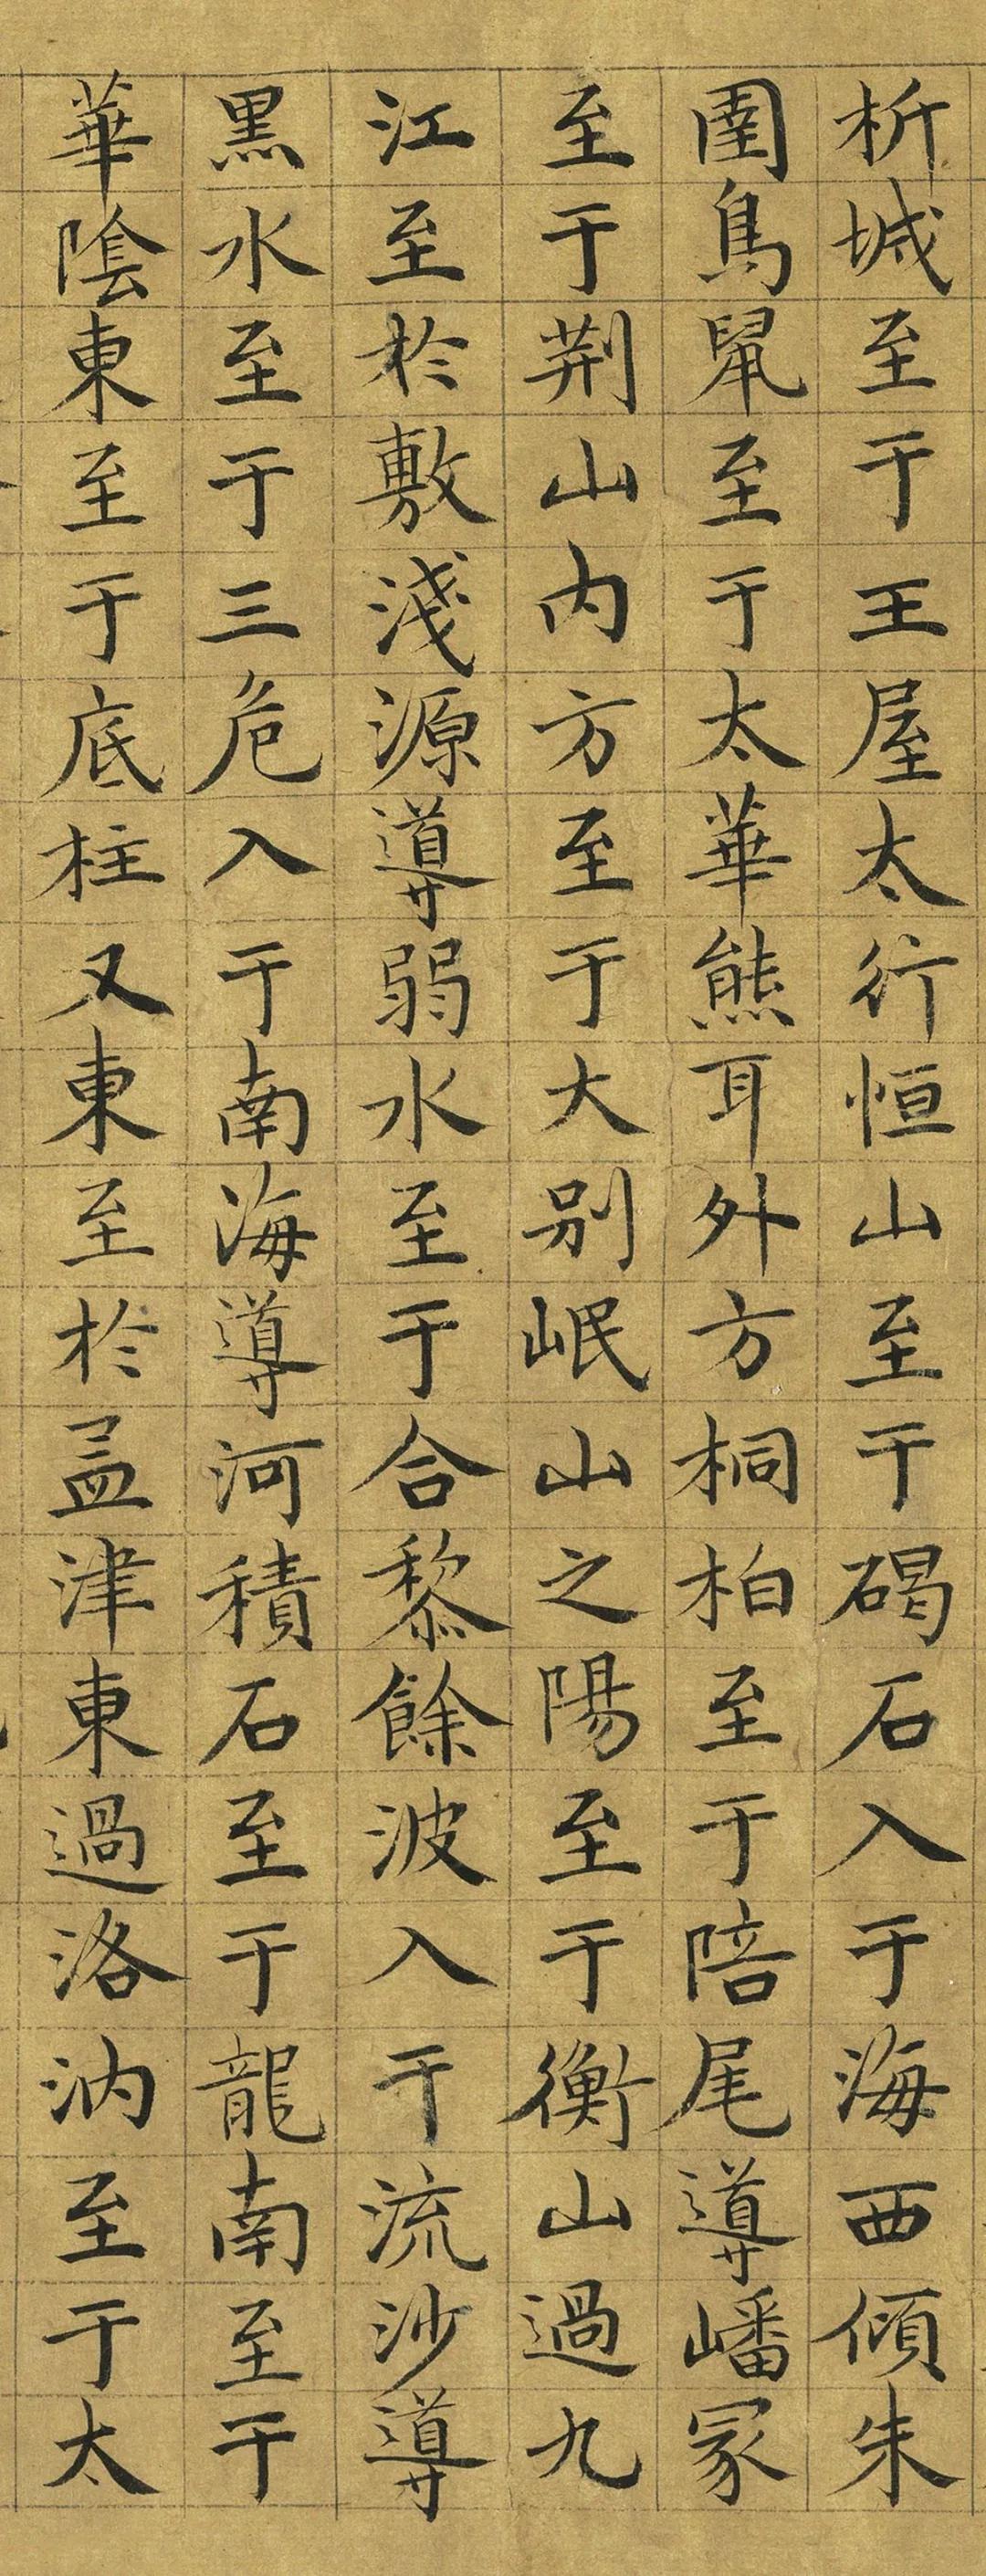 析城至于王屋太行恒山至于碣石入于海西傾朱
圉鳥鼠至于太華熊耳外方桐柏至于陪尾導嶓冢
至于荆山内方至于大别岷山之陽至于衡山過九
江至於敷淺源導弱水至于合黎餘波入于流沙導
黑水至于三危入于南海導河積石至于龍南至于
華陰東至于底柱又東至於孟津東過洛汭至于太